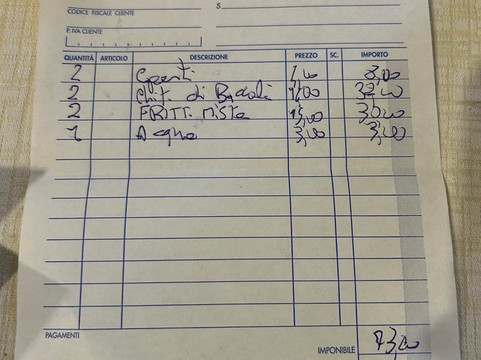 S
CODICE FISCALE CLIENTE
P. IVA CLIENTE
QUANTITÀ ARTICOLO DESCRIZIONE PREZZO SC. IMPORTO
2 Coperti 8,00
2 di 32,00
2 FRITT. MISTO 15,00 30,00
1 Acqua 3,00 3,00
PAGAMENTI
IMPONIBILE 73,00